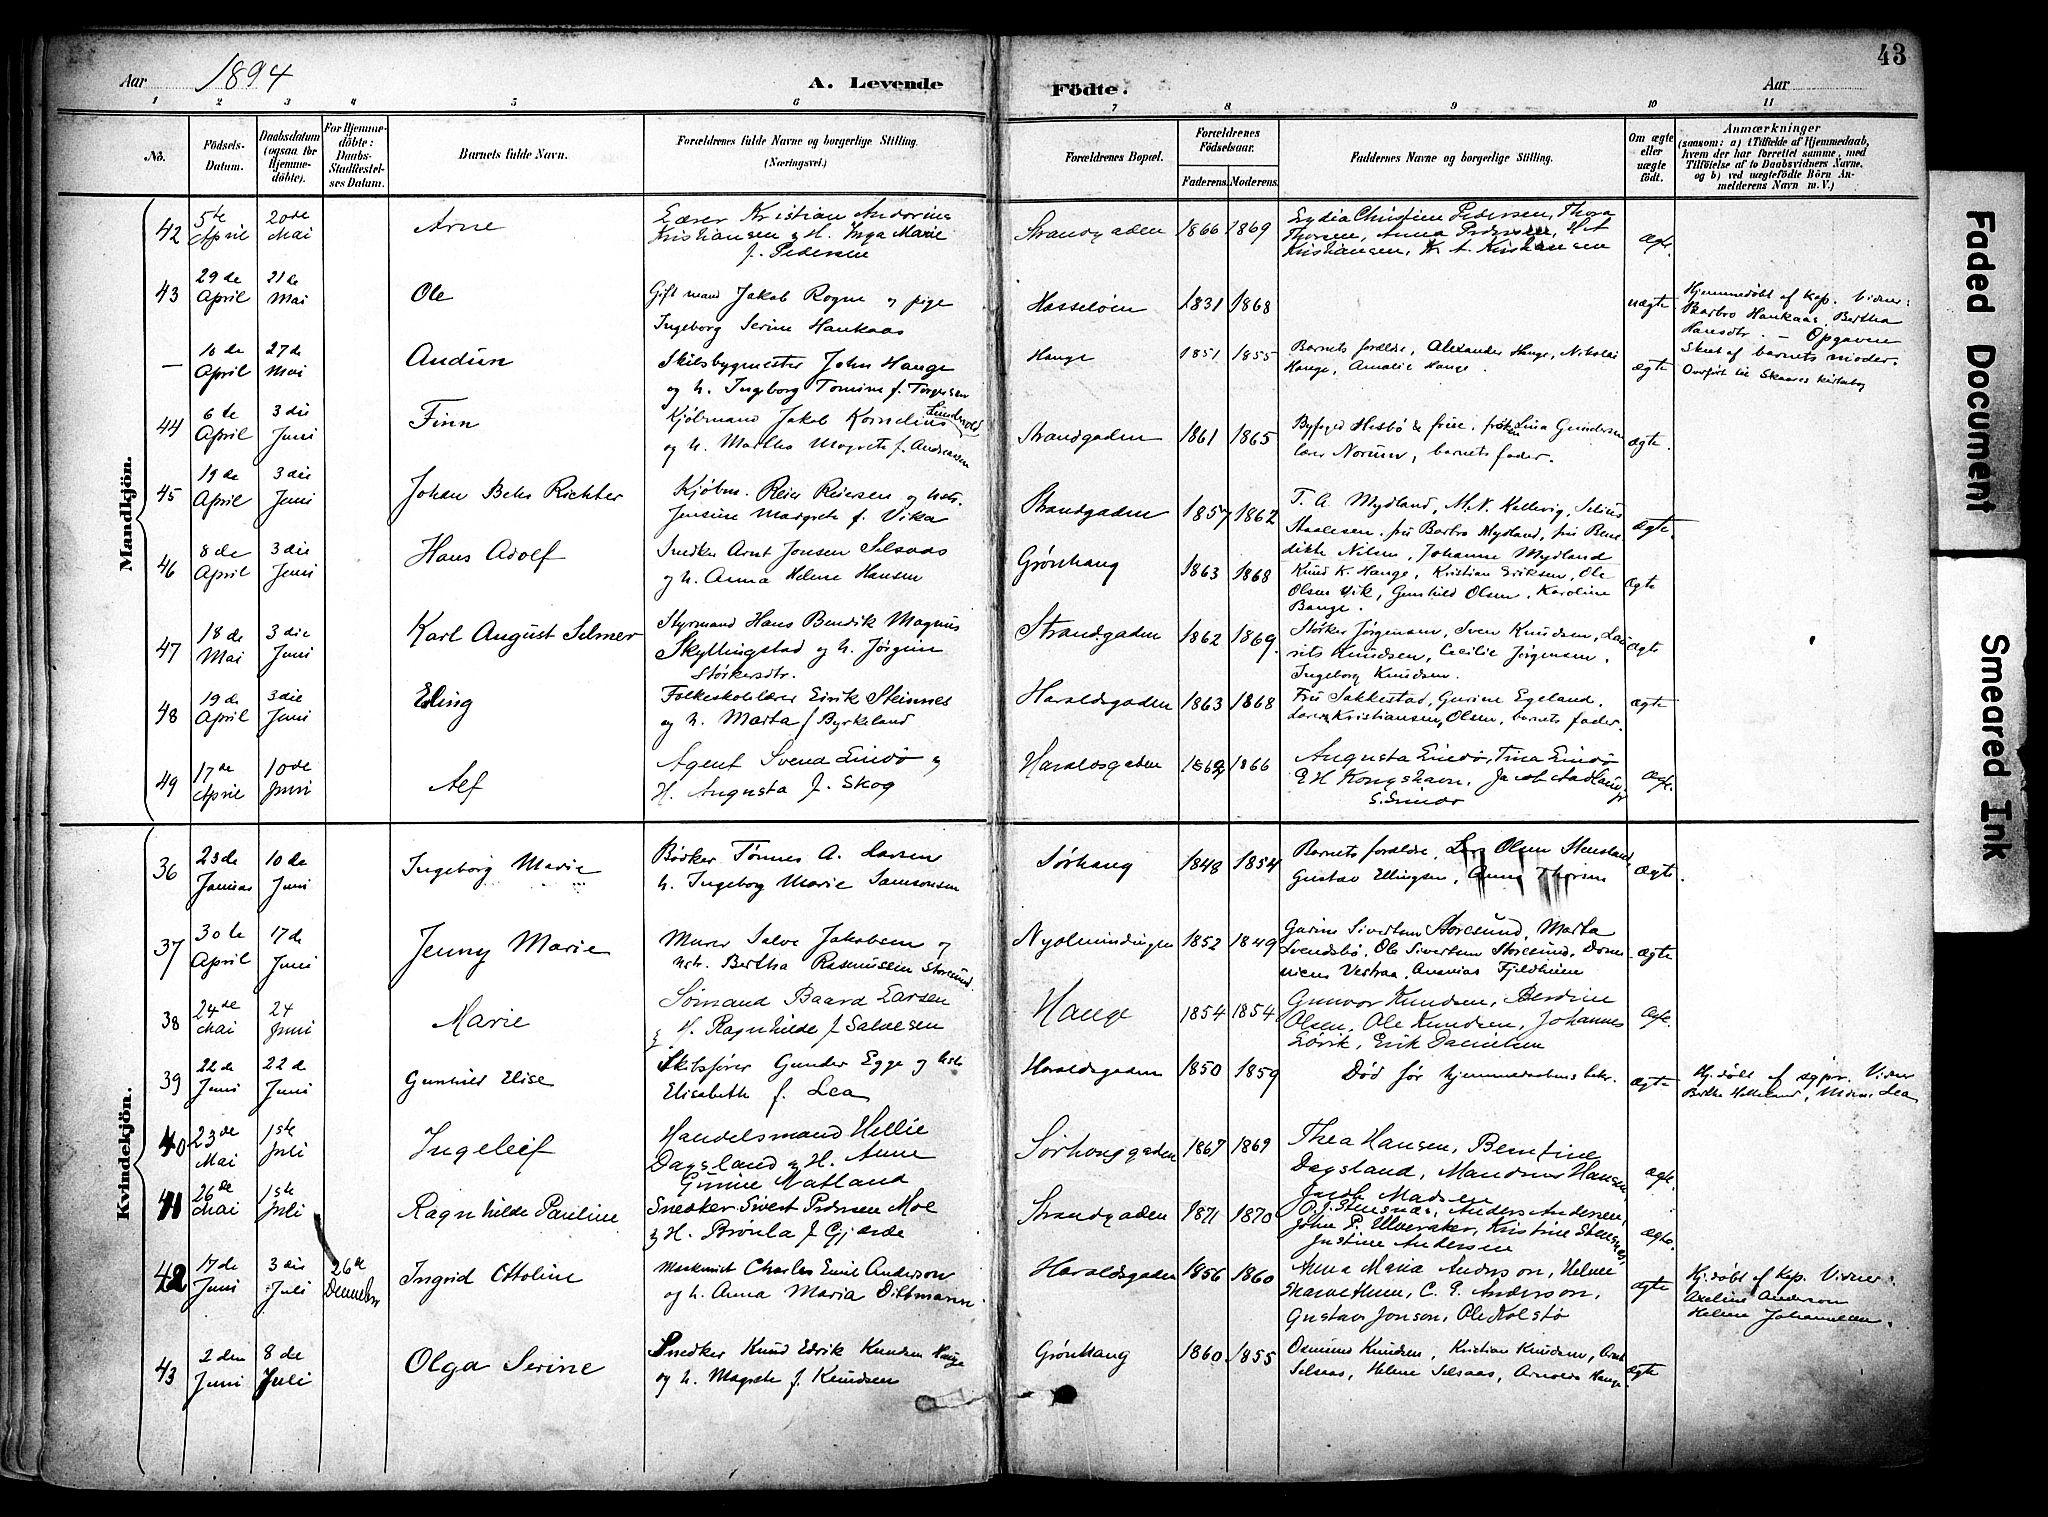 43
Aar 1894
A. Levende
Födte.
Aar
1 2 3 4 5 6 7 8 9 10 11
No.
Födsels-
Datum.
Daabsdatum
(ogsaa for
Hjemme-
döbte).
For Hjemme-
döbte:
Daabs-
Stadfæstel-
ses Datum.
Barnets fulde Navn.
Forældrenes fulde Navne og borgerlige Stilling.
(Næringsvei.)
Forældrenes Bopæl.
Forældrenes
Födselsaar.
Faderens. Moderens.
Faddernes Navne og borgerlige Stilling.
Om ægte
eller
uægte
födt.
Anmærkninger
(saasom: a) i Tilfælde af Hjemmedaab,
hvem der har forrettet samme, med
Tilföielse af to Daabsvidners Navne,
og b) ved uægtefödte Börn An-
melderens Navn m. V.)
Mandkjön.
42 5te April 20de Mai Arne
Kristian
Kristiansen & H. Inga Marie
f. Pedersen
Strandgaden 1866 1869
Lydia Christine Pedersen, Thora
Thorsen, Anna Pedersen, H A
Kristiansen, K. A. Kristiansen
ægt.
43 29de April 21de Mai Ole
Gift mand Jakob Rogne og pige
Ingeborg Serine Haukaas
Hasseløen 1831 1868
uægte
Hjemmedøbt af Kap. Vidner:
Barbro Haukaas, Bertha
Hansdtr. – Opgaven
Skeet af barnets moder.
— 16de April 27de Mai Audun
Skibsbygmester John Hauge
og h. Ingeborg Tomine f. Torgersen
Hauge 1851 1855
Barnets forældre, Alexander Hauge, Nikolai
Hauge, Amalie Hauge.
ægte
Overført til Skaares kirkebog
44 6te April 3die Juni Finn
Kjøbmand Jakob Kornelius
og h. Martha Magrete f. Andreassen
Strandgaden 1861 1865
Byfoged Hesbø & frue, frøken Lina Gundersen
lærer Norum, barnets fader.
ægte.
45 19de April 3die Juni Johan Behr Richter
Kjøbm. Reier Reiersen og hstr.
Jensine Margrete f. Vika
Strandgaden 1857 1862
T. A. Mydland, M. N. Kallevig, Selius
Staalesen, fru Barbro Mydland, fru Bene
dikte Nilsen, Johanne Mydland
ægte.
46 8de April 3die Juni Hans Adolf
Snedker Arnt Jonsen Selsaas
og h. Anna Helene Hansen
Grønhaug 1863 1868
Knud K. Hauge, Kristian Eriksen, Ole
Olsen Vik, Gunhild Olsen, Karoline
Bauge.
ægte
47 18de Mai 3die Juni Karl August Selmer
Styrmand Hans Bendik Magnus
Skyllingstad og h. Jørgine
Størkersdtr.
Strandgaden 1862 1869.
Størker Jørgensen, Sven Knudsen, Lau
rits Knudsen, Cecilie Jørgensen.
Ingeborg Knudsen.
ægte
48 19de April 3die Juni Erling
Folkeskolelærer Eirik Steinnes
og h. Marta f Byrkeland
Haraldsgaden 1863 1868
Fru Sakkestad, Gurine Egeland.
Lærer Kristiansen, Olsen, barnets fader.
ægte
49 17de April 10de Juni Alf
Agent Svend Lindø og
H. Augusta f. Skog
Haraldsgaden 1862 1866
Augusta Lindø, Tina Lindø
P. H Kongshavn,
ægt.
Kvindekjön.
36 23de Januar 10de Juni Ingeborg Marie
Bødker Tønnes A. Larsen
h. Ingeborg Marie Samsonsen
Sørhaug 1848 1854
Barnets forældre, Lars Olsen Stensland
Gustav Ellingsen, Anna Thorsen
ægte.
37 30te April 17de Juni Jenny Marie
Murer Salve Jakobsen og
hstr. Bertha Rasmussen Storesund.
1852 1849
Gurine Sivertsen Storesund, Marta
Svendsbø, Ole Sivertsen Storesund,
Vestraa, Ananias Fjeldheim
ægte
38 24de Mai 24 Juni Marie
Sømand Baard Larsen
& H. Ragnhilde f Salvesen
Hauge 1854 1854
Gunvor Knudsen, Berdine
Olsen, Ole Knudsen, Johannes
Løvik, Erik Danielsen
ægt.
39 22de Juni 22d Juni Gunhild Elise
Skibsfører Gunder Egge og hstr
Elisabeth f. Lea
Haraldsgaden 1850 1859
Død før hjemmedaabens bekr.
ægte
Hj.døbt af Vidner
Lea
40 23de Mai 1ste Juli Ingeleif
Handelsmand Hellie
Dagsland & H. Anne
Gurine Natland
Sørhauggaden 1867 1869
Thea Hansen, Berntine
Dagsland, Mandrup Hansen,
Jacob Madsen
ægt.
41 26de Mai 1ste Juli Ragnhilde Pauline
Snedker Sivert Pedersen Moe
& H. Brønla f Gjærde
Strandgaden 1871 1870
P. J. Stensnæs, Anders Andersen,
John P. Ulveraker, Kristine Stensnæs,
Justine Andersen
ægte.
42 17de Juni 3die Juli 26de Decembr Ingrid Ottoline
Maskinist Charles Emil Anderson
og h. Anna Maria Dittmann.
Haraldsgaden 1856 1860
Anna Maria Anderson, Helene
C. E. Anderson,
Gustav Jonson, Ole Kolstø
ægte
Hj.døbt af Kap. Vidner:
Axeline Anderson
Helene Johannesen.
43 2den Juni 8de Juli Olga Serine
Snedker Knud Edrik Knudsen Hauge
og h. Magrete f. Knudsen
Grønhaug 1860 1855
Osmund Knudsen, Kristian Knudsen, Arnt
Selsaas, Helene Selsaas, Arnolds Hauge.
ægte
Faded Document
Smeared Ink